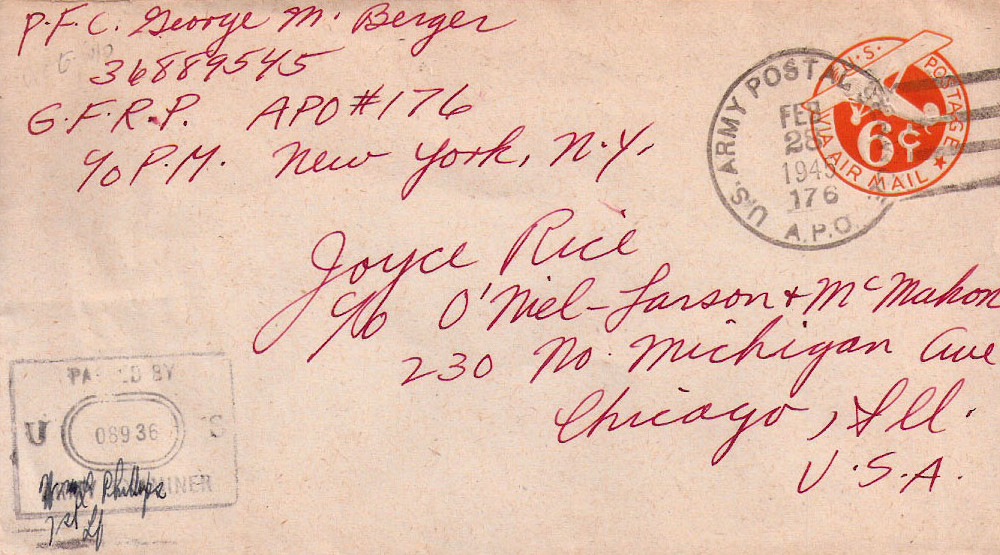 P.F.C. George M. Berger
36889545
G.F.R.P. APO #176
c/o P.M. New York, N.Y.
U.S. ARMY POSTAL
FEB
28
1945
176
A.P.O.
U.S. POSTAGE
6¢
VIA AIR MAIL
Joyce Rice
c/o O'Niel-Larson + McMahon
230 No. Michigan Ave
Chicago, Ill.
U.S.A.
PASSED BY
U 08936 S
Phillips
1st Lt